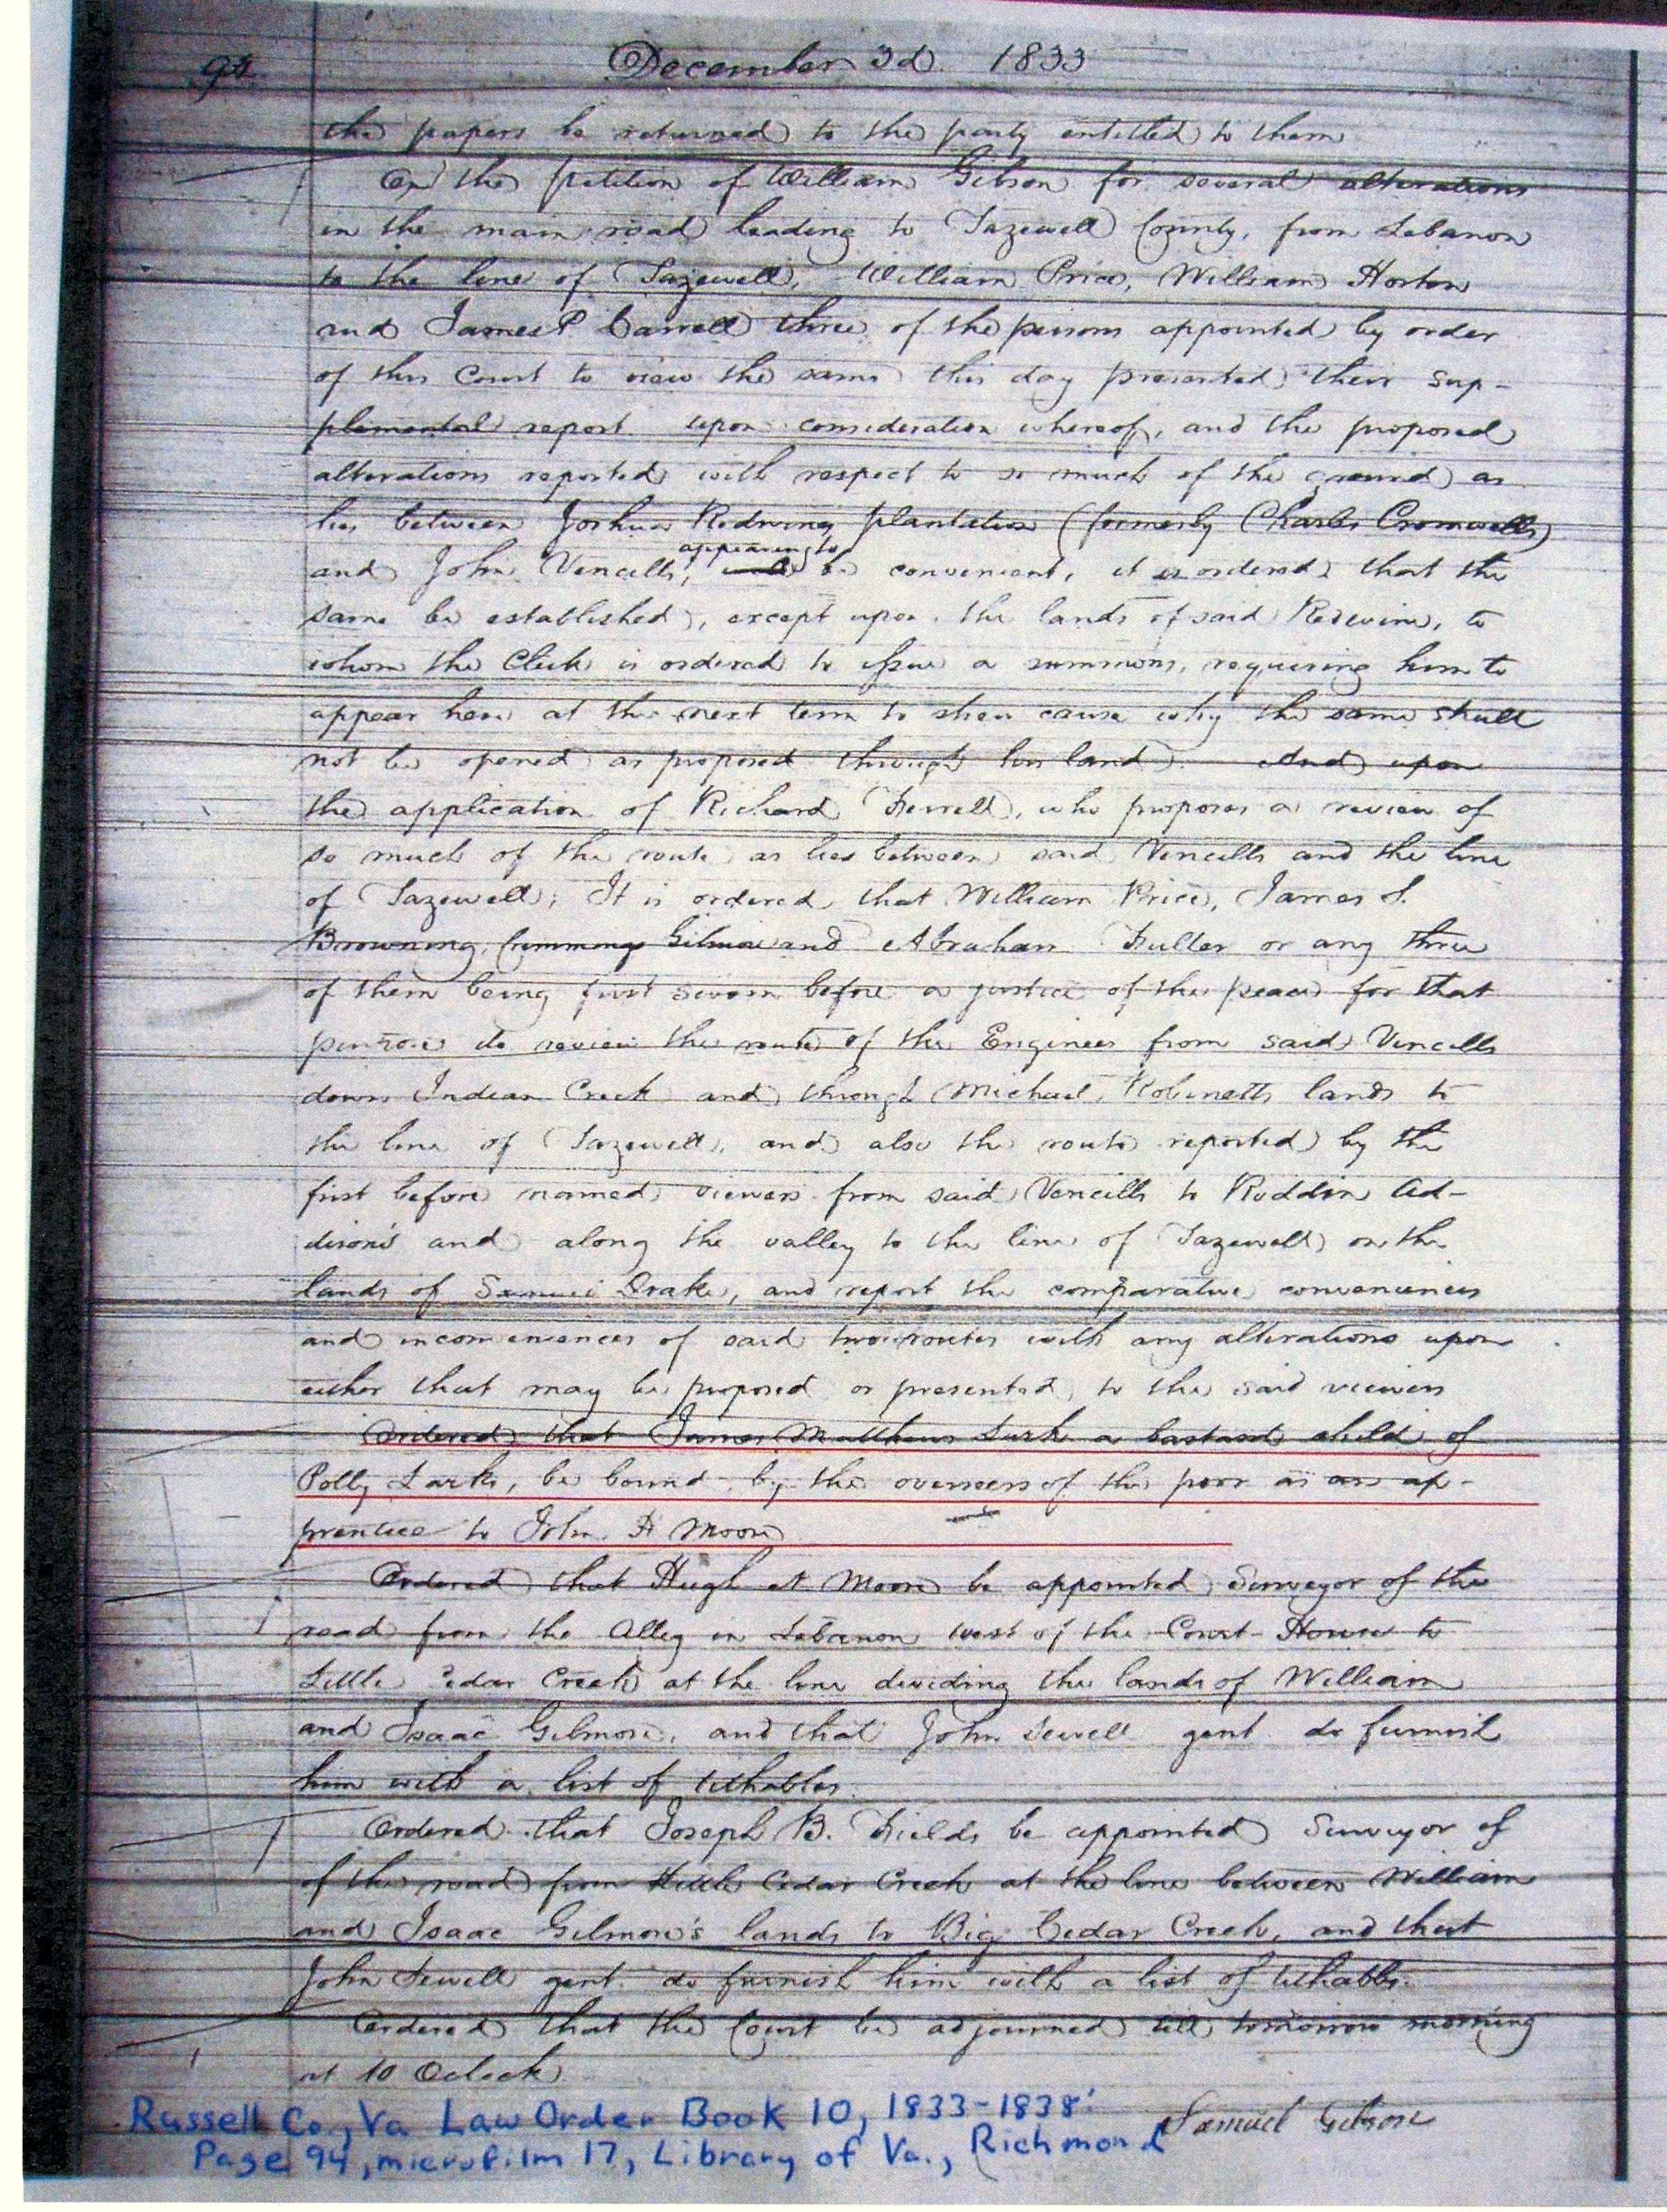 94
December 3d. 1833
the papers be returned to the party entitled to them
On the petition of William Gibson for several alterations
in the main road leading to Tazewell County, from Lebanon
to the line of Tazewell, William Price, William Horton
and James P Carrell three of the persons appointed by order
of this Court to view the same this day presented their sup-
plemental report upon consideration whereof, and the proposed
alterations reported with respect to so much of the ground as
lies between Joshua Redwines plantation (formerly Charles Cromwells)
appearing to
and John Vencills, be convenient, it is ordered that the
same be established, except upon the lands of said Redwine, to
whom the Clerk is ordered to issue a summons, requiring him to
appear here at the next term to shew cause why the same shall
not be opened as proposed through his land. And upon
the application of Richard Ferrell, who proposes a review of
so much of the route as lies between said Vencills and the line
of Tazewell; It is ordered that William Price, James S.
Browning, Cummings Gilmore and Abraham Fuller or any three
of them being first sworn before a justice of the peace for that
purpose do review the route of the Engineer from said Vencills
down Indian Creek and through Michael Robinetts lands to
the line of Tazewell, and also the route reported by the
first before named viewers from said Vencills to Ruddin Ad-
disons and along the valley to the line of Tazewell on the
lands of Samuel Drake, and report the comparative conveniences
and inconveniences of said two routes with any alterations upon
either that may be proposed or presented to the said viewers
Ordered that James Matthews Lark a bastard child of
Polly Lark, be bound by the overseers of the poor as an ap-
prentice to John H Moore
Ordered that Hugh A Moore be appointed Surveyor of the
road from the Alley in Lebanon west of the Court House to
Little Cedar Creek at the line dividing the lands of William
and Isaac Gilmore, and that John Sewell gent do furnish
him with a list of tithables.
Ordered that Joseph B. Fields be appointed Surveyor of
of the road from Little Cedar Creek at the line between William
and Isaac Gilmore's lands to Big Cedar Creek, and that
John Sewell gent. do furnish him with a list of tithables.
Ordered that the Court be adjourned till tomorrow morning
at 10 Oclock
Samuel Gibson
Russell Co., Va Law Order Book 10, 1833-1838
Page 94, microfilm 17, Library of Va., Richmond